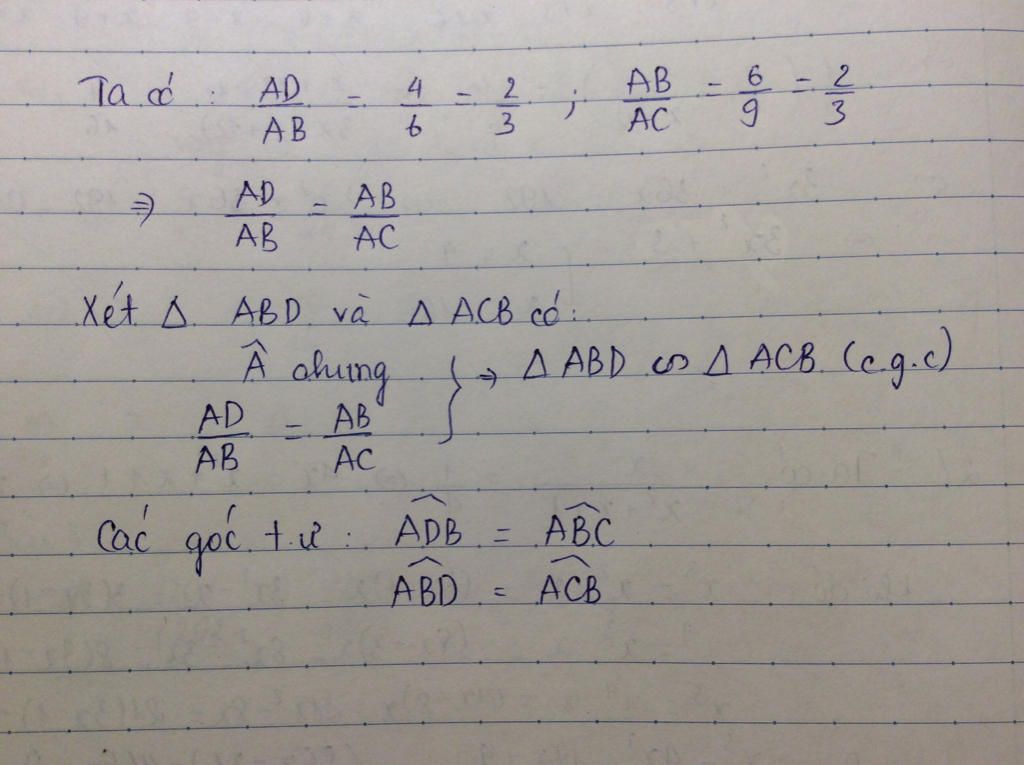 Ta có : AD/AB = 4/6 = 2/3 ; AB/AC = 6/9 = 2/3
⇒ AD/AB = AB/AC
Xét Δ ABD và Δ ACB có:
Â chung
AD/AB = AB/AC } ⇒ Δ ABD ∽ Δ ACB (c.g.c)
Các góc t.ư : ADB̂ = ABĈ
ABD̂ = ACB̂